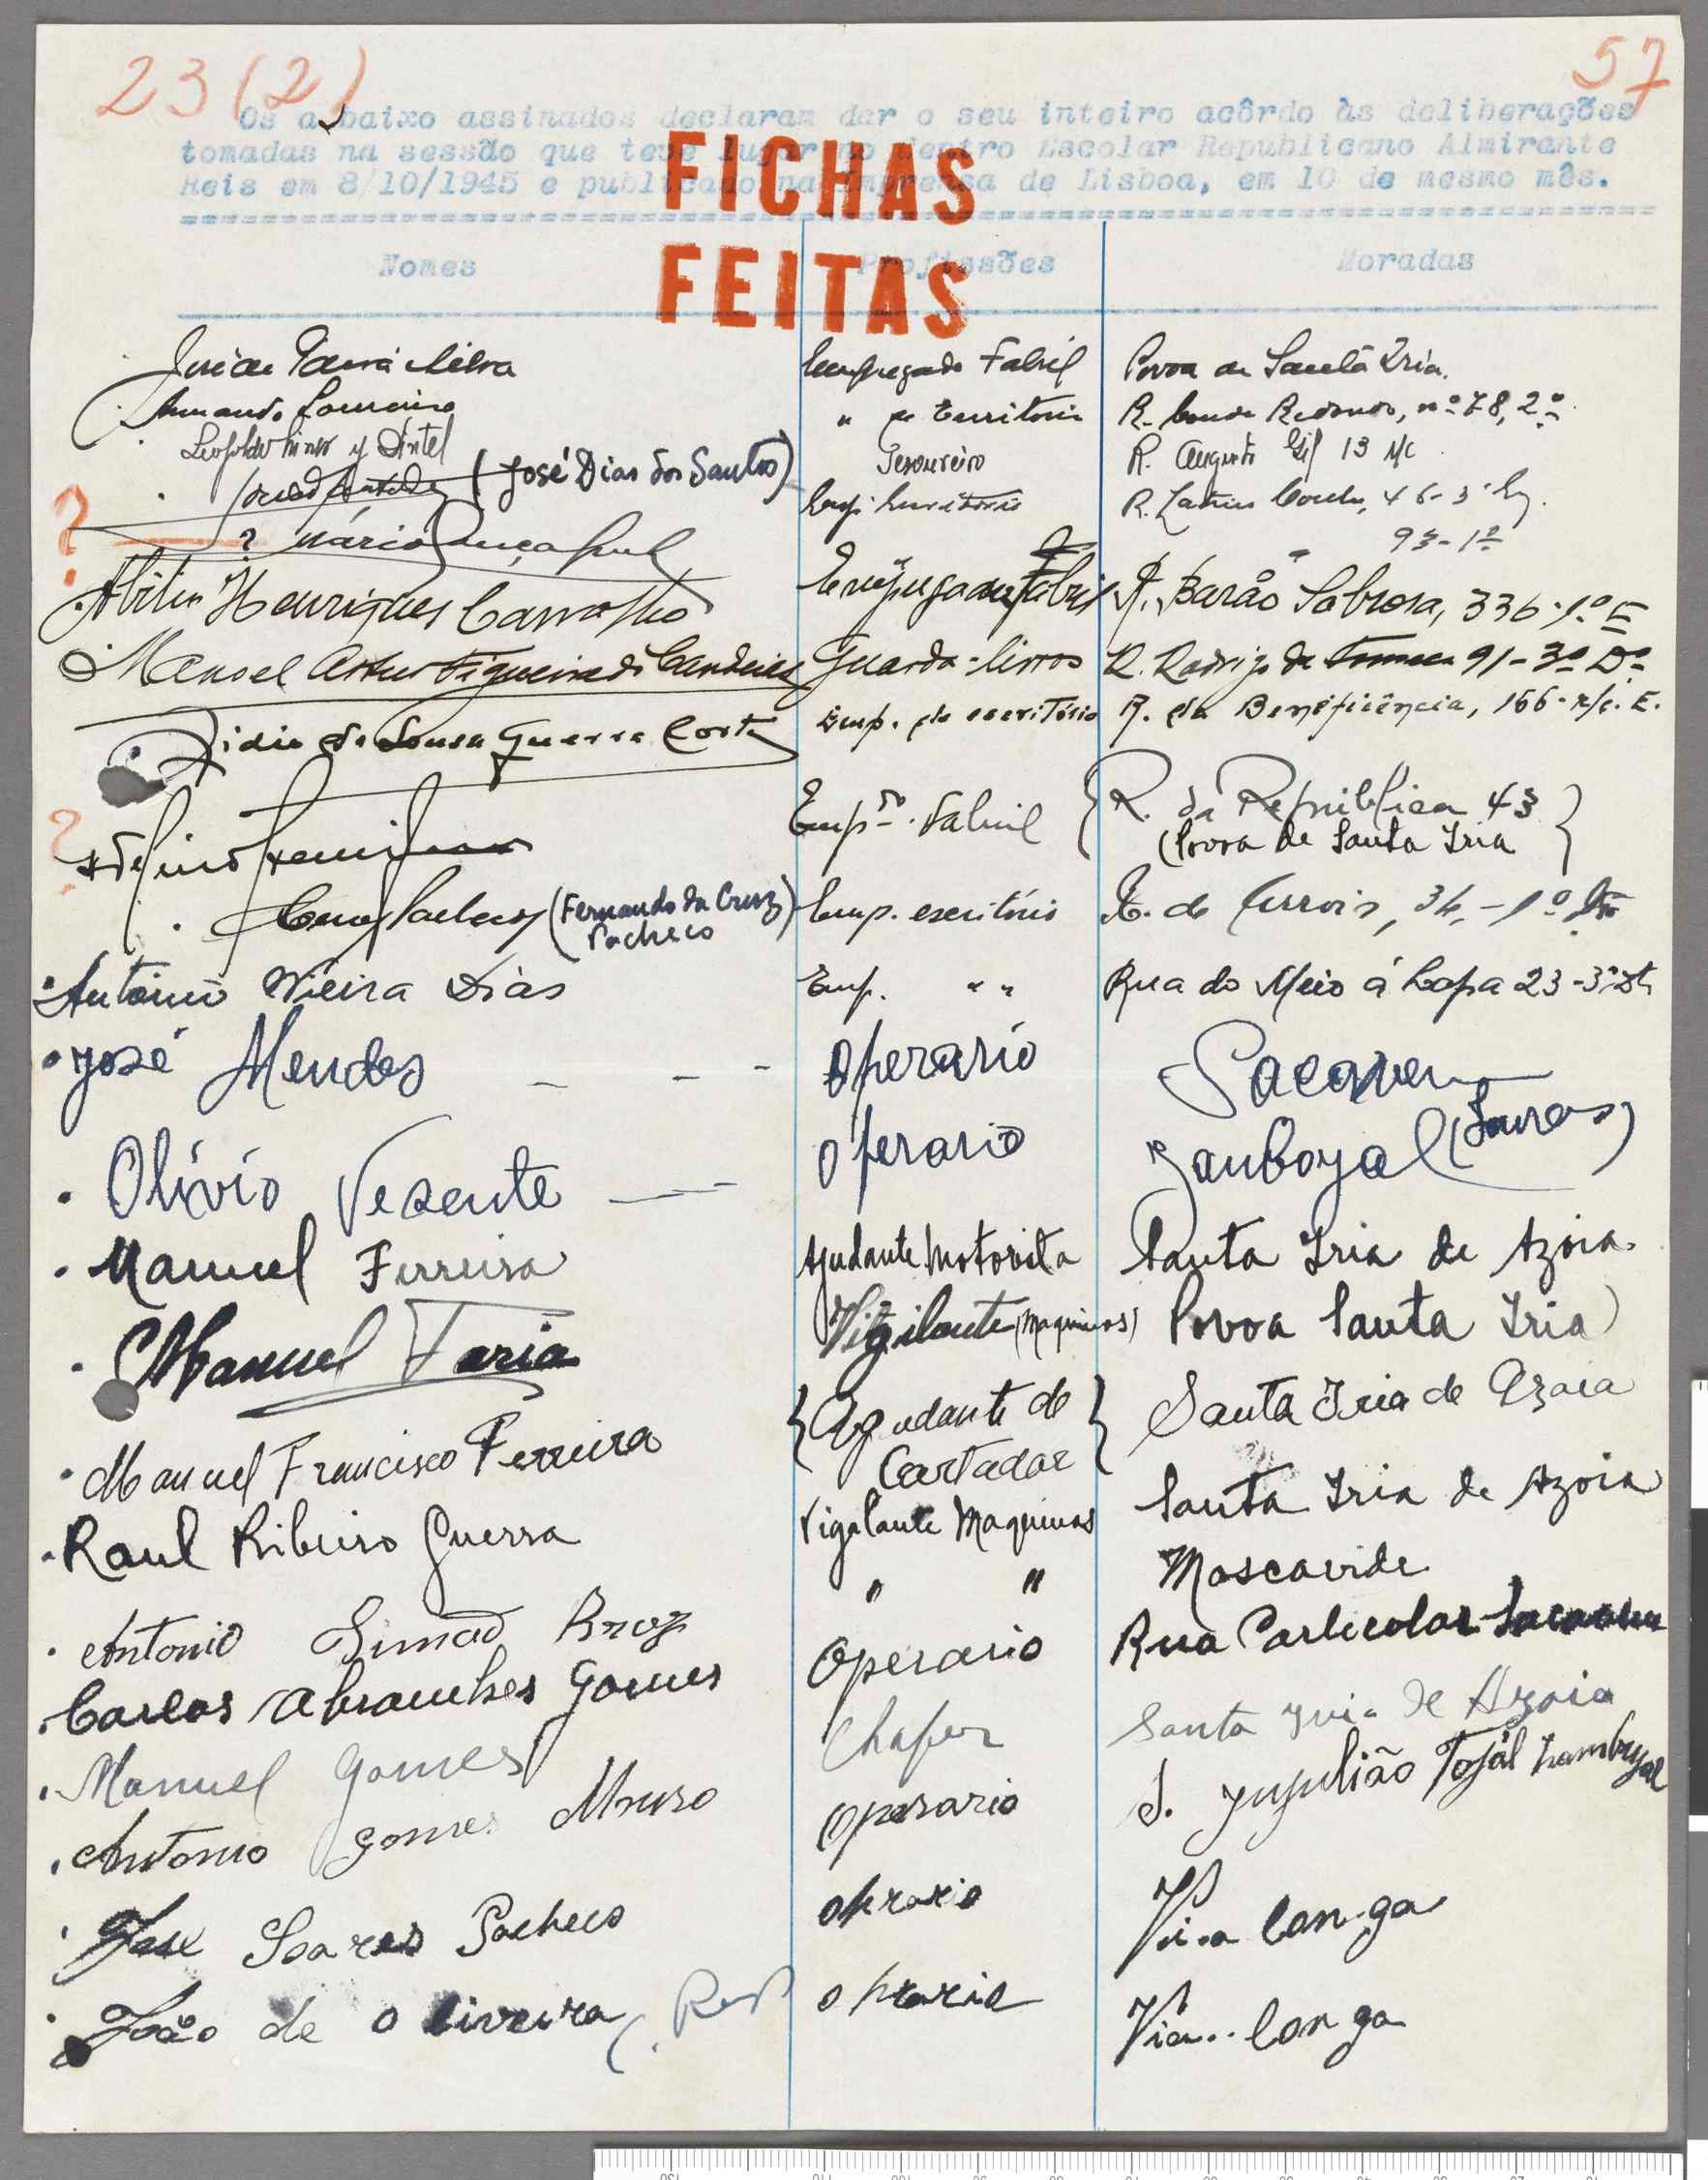 23 (2)
57
Os abaixo assinados declaram dar o seu inteiro acôrdo às deliberações
tomadas na sessão que teve lugar no Centro Escolar Republicano Almirante
Reis em 8/10/1945 e publicado na Imprensa de Lisboa, em 10 do mesmo mês.
FICHAS
FEITAS
Nomes Profissões Moradas
Silva Empregado Fabril Povoa de Santa Iria.
Armando Loureiro " de Escritorio R. Conde Redondo, nº 78, 2º
Leopoldo y Pintel Tesoureiro R. Augusto Gil 13 r/c
(José Dias dos Santos) Emp. Escritório R. 46-3º
? Mário 93-1º
Abilio Henriques Carvalho Empregado Fabril R. Barão Sabrosa, 336-1º E
Manoel Artur Figueiredo Guarda-livros R. Rodrigo da Fonseca 91-3º Dº
Didio de Sousa Guerra Costa Emp. de escritório R. da Beneficência, 166-r/c. E.
? Emp.do Fabril { R. da República 43 }
(Povoa de Santa Iria
(Fernando da Cruz Pacheco) Emp. escritório 34,-1º
Antonio Vieira Dias Emp. " " Rua do Meio á Lapa 23-3º Dt.
José Mendes - - - Operario Sacavem
Olívio Vesente Operario Zanboyal (Loures)
Manuel Ferreira Ajudante Motorista Santa Iria de Azoia.
Manuel Faria Vigilante (Maquinas) Povoa Santa Iria
Manuel Francisco Ferreira { Agudante de Cartador } Santa Iria de Azoia
Raul Ribeiro Guerra Vigilante Maquinas Santa Iria de Azoia
Antonio " " Moscavide
Carlos Abranches Gomes Operario Rua Particolar Sacavem
Manuel Gomes Chofer Santa Iria de Azoia
Antonio Gomes Operario S. Tojal
José Soares Pacheco oprario Via longa
João de Oliveira oprario Via..longa